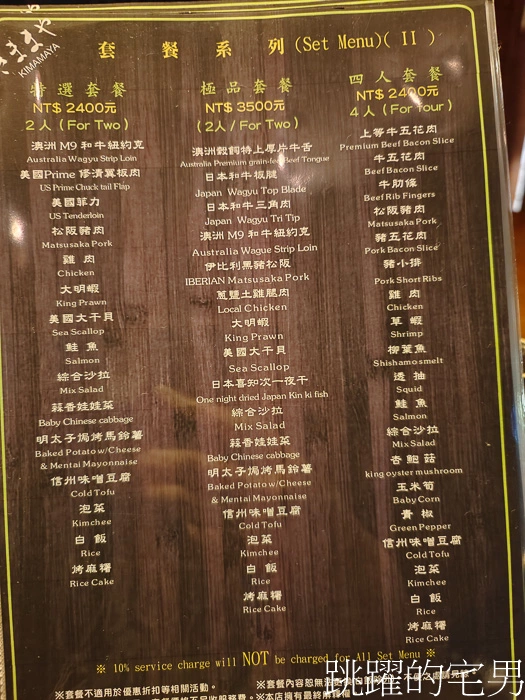 きままや
KIMAMAYA
套 餐 系 列 (Set Menu)( II )
特選套餐
NT$ 2400元
2人 (For Two)
澳洲 M9 和牛紐約克
Australia Wagyu Strip Loin
美國Prime 修清翼板肉
US Prime Chuck tail Flap
美國菲力
US Tenderloin
松阪豬肉
Matsusaka Pork
雞 肉
Chicken
大明蝦
King Prawn
美國大干貝
Sea Scallop
鮭 魚
Salmon
綜合沙拉
Mix Salad
蒜香娃娃菜
Baby Chinese cabbage
明太子焗烤馬鈴薯
Baked Potato w/Cheese
& Mentai Mayonnaise
信州味噌豆腐
Cold Tofu
泡菜
Kimchee
白 飯
Rice
烤麻糬
Rice Cake
極品套餐
NT$ 3500元
(2人/ For Two)
澳洲穀飼特上厚片牛舌
Australia Premium grain-feed Beef Tongue
日本和牛板腱
Japan Wagyu Top Blade
日本和牛三角肉
Japan Wagyu Tri Tip
澳洲 M9 和牛紐約克
Australia Wague Strip Loin
伊比利黑豬松阪
IBERIAN Matsusaka Pork
蔥鹽土雞腿肉
Local Chicken
大明蝦
King Prawn
美國大干貝
Sea Scallop
日本喜知次一夜干
One night dried Japan Kin ki fish
綜合沙拉
Mix Salad
蒜香娃娃菜
Baby Chinese cabbage
明太子焗烤馬鈴薯
Baked Potato w/Cheese
& Mentai Mayonnaise
信州味噌豆腐
Cold Tofu
泡菜
Kimchee
白 飯
Rice
烤麻糬
Rice Cake
四人套餐
NT$ 2400元
4人 (For four)
上等牛五花肉
Premium Beef Bacon Slice
牛五花肉
Beef Bacon Slice
牛肋條
Beef Rib Fingers
松阪豬肉
Matsusaka Pork
豬五花肉
Pork Bacon Slice
豬小排
Pork Short Ribs
雞 肉
Chicken
草 蝦
Shrimp
柳葉魚
Shishamo smelt
透 抽
Squid
鮭 魚
Salmon
綜合沙拉
Mix Salad
杏鮑菇
king oyster mushroom
玉米筍
Baby Corn
青 椒
Green Pepper
信州味噌豆腐
Cold Tofu
泡菜
Kimchee
白 飯
Rice
烤麻糬
Rice Cake
※ 10% service charge will NOT be charged for All Set Menu ※
※套餐不適用於優惠折扣等相關活動。
※套餐內容恕無法更
跳躍的宅男